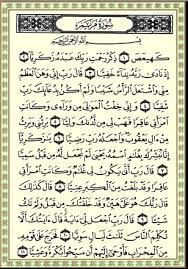 سُورَةُ مَرْيَمَ
بِسْمِ اللَّهِ الرَّحْمَٰنِ الرَّحِيمِ
كٓهيعٓصٓ ١ ذِكْرُ رَحْمَتِ رَبِّكَ عَبْدَهُ زَكَرِيَّا ٢
إِذْ نَادَىٰ رَبَّهُ نِدَاءً خَفِيًّا ٣ قَالَ رَبِّ إِنِّي وَهَنَ الْعَظْمُ
مِنِّي وَاشْتَعَلَ الرَّأْسُ شَيْبًا وَلَمْ أَكُن بِدُعَائِكَ رَبِّ
شَقِيًّا ٤ وَإِنِّي خِفْتُ الْمَوَالِيَ مِن وَرَاءِي وَكَانَتِ
امْرَأَتِي عَاقِرًا فَهَبْ لِي مِن لَّدُنكَ وَلِيًّا ٥ يَرِثُنِي وَيَرِثُ
مِنْ آلِ يَعْقُوبَ وَاجْعَلْهُ رَبِّ رَضِيًّا ٦ يَٰزَكَرِيَّا إِنَّا
نُبَشِّرُكَ بِغُلَٰمٍ اسْمُهُ يَحْيَىٰ لَمْ نَجْعَل لَّهُ مِن قَبْلُ سَمِيًّا
٧ قَالَ رَبِّ أَنَّىٰ يَكُونُ لِي غُلَٰمٌ وَكَانَتِ امْرَأَتِي
عَاقِرًا وَقَدْ بَلَغْتُ مِنَ الْكِبَرِ عِتِيًّا ٨ قَالَ كَذَٰلِكَ
قَالَ رَبُّكَ هُوَ عَلَيَّ هَيِّنٌ وَقَدْ خَلَقْتُكَ مِن قَبْلُ وَلَمْ تَكُ
شَيْئًا ٩ قَالَ رَبِّ اجْعَل لِّي آيَةً قَالَ آيَتُكَ أَلَّا تُكَلِّمَ
النَّاسَ ثَلَٰثَ لَيَالٍ سَوِيًّا ١٠ فَخَرَجَ عَلَىٰ قَوْمِهِ
مِنَ الْمِحْرَابِ فَأَوْحَىٰ إِلَيْهِمْ أَن سَبِّحُوا بُكْرَةً وَعَشِيًّا ١١